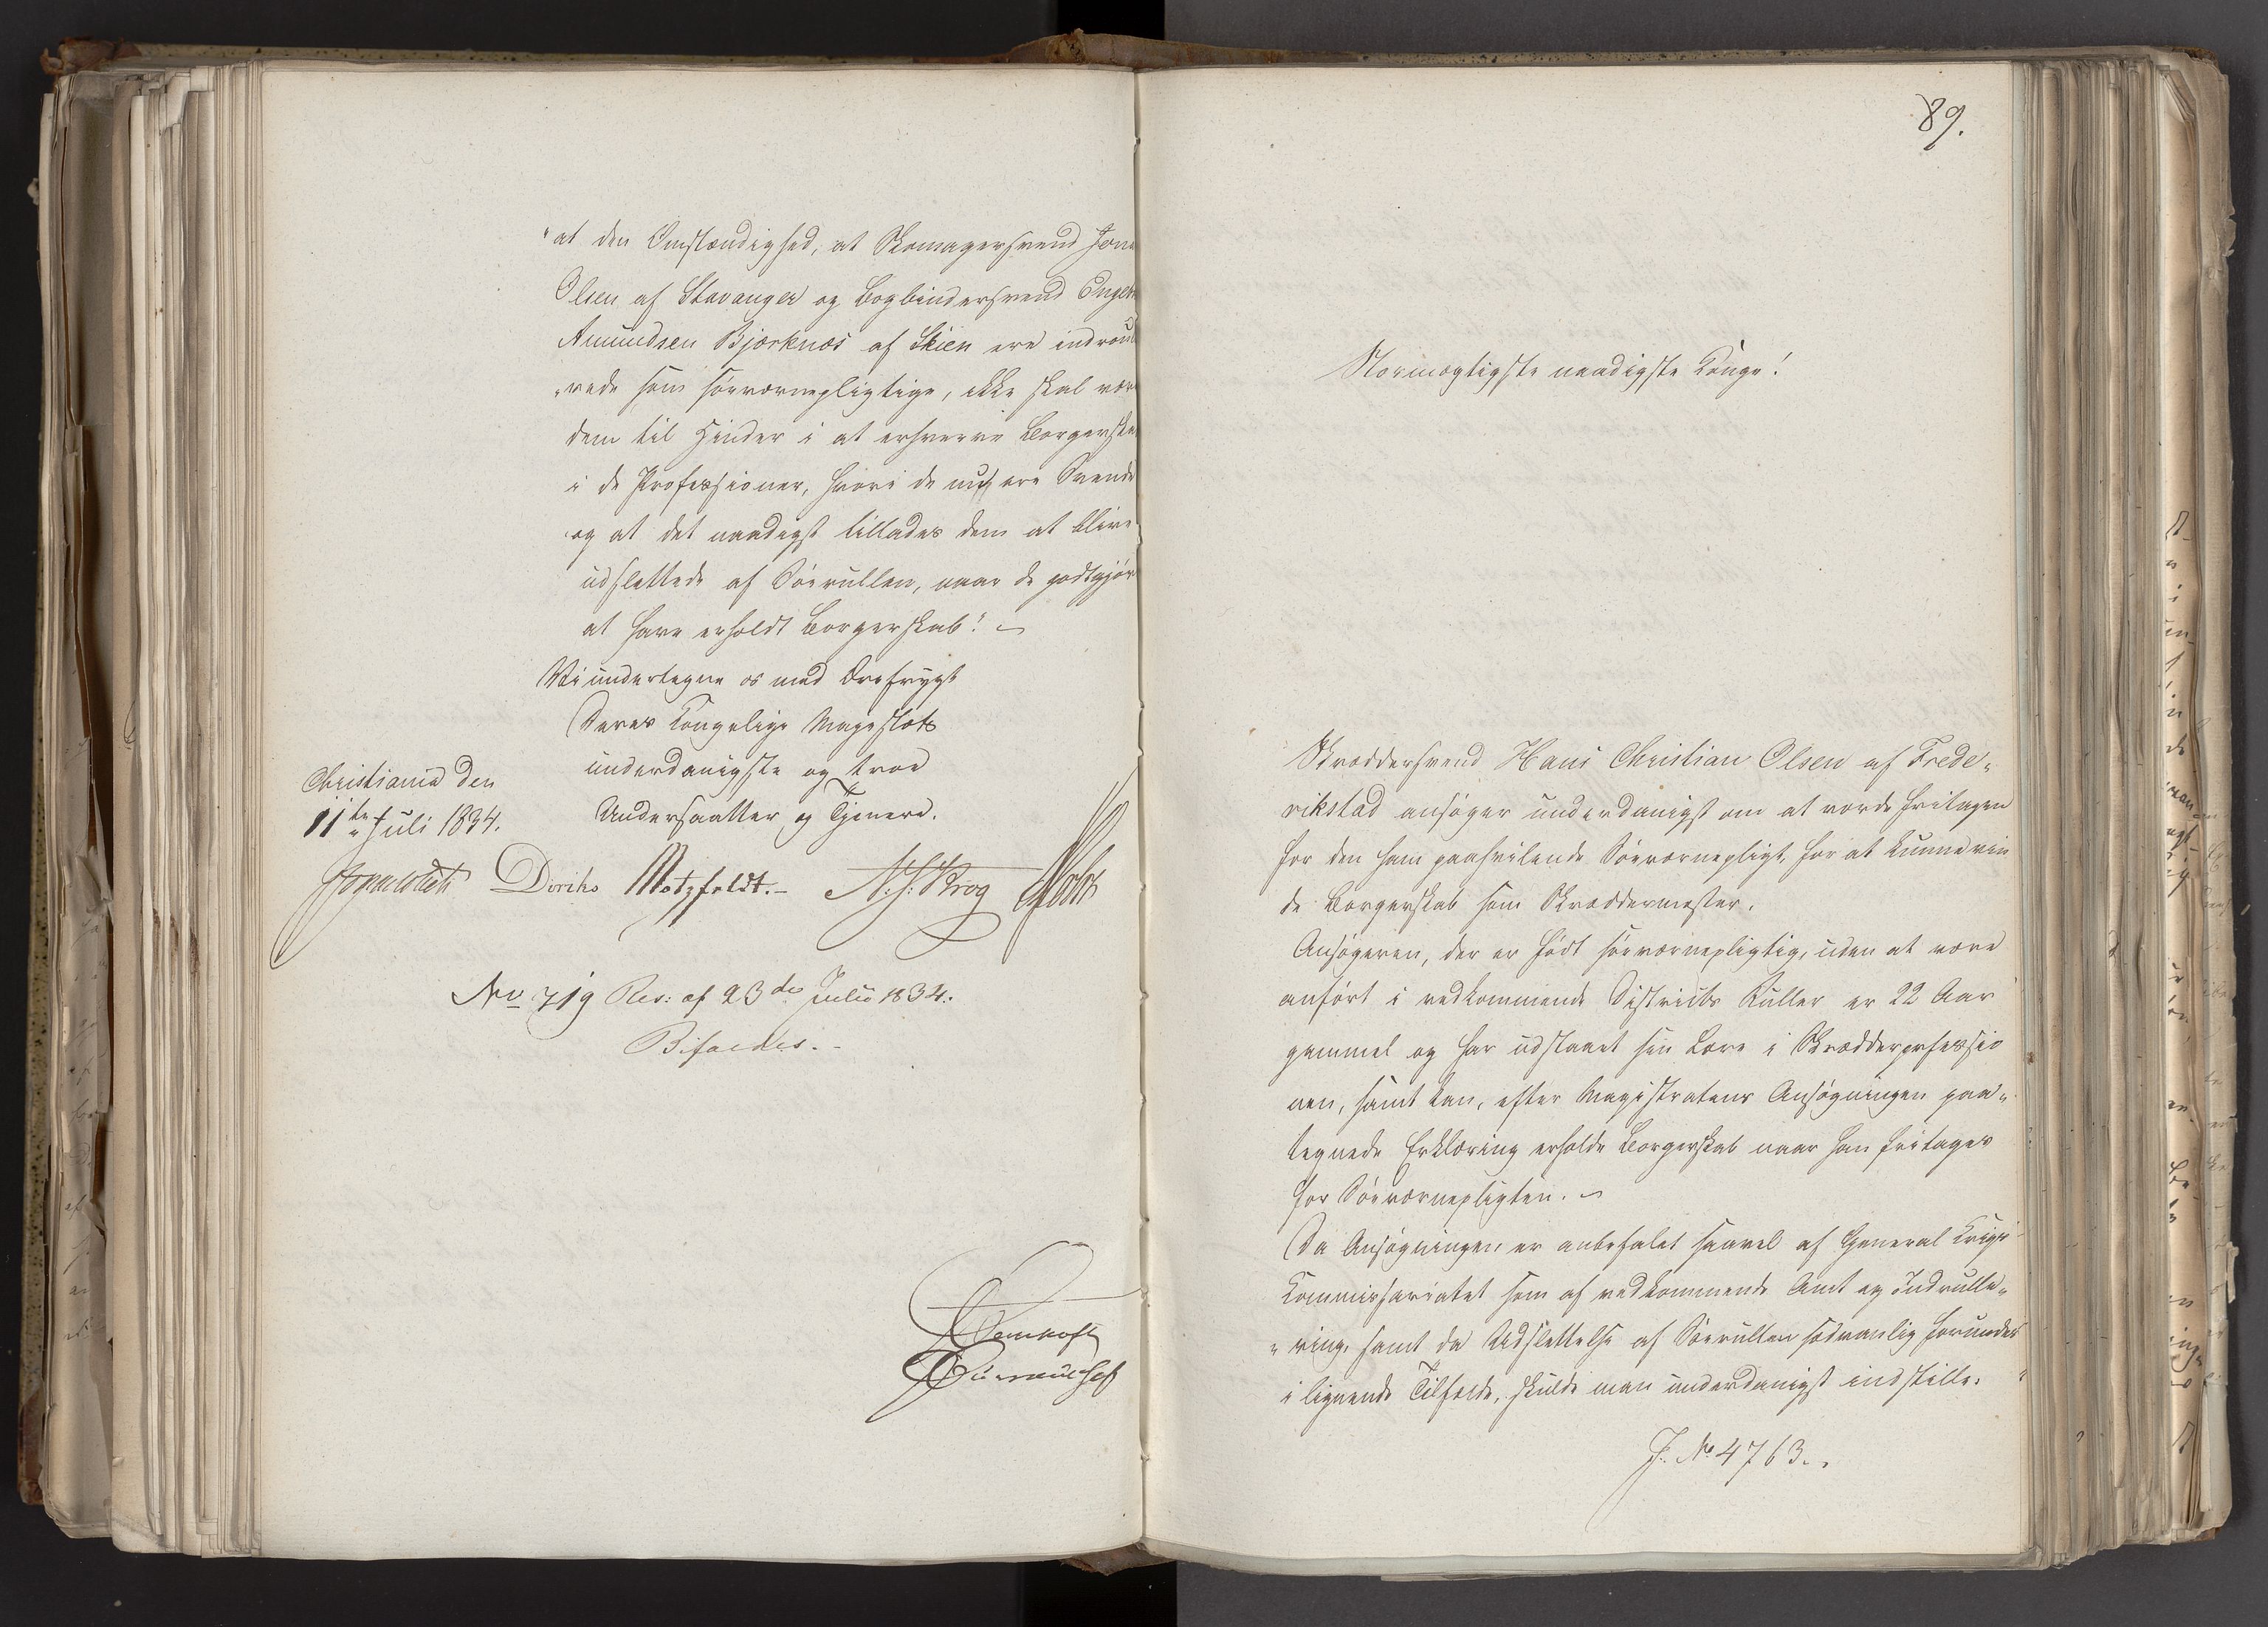 "at den Omstændighed, at Skomagersvend Jon
Olsen af Stavanger og Bogbindersvend Engeb
Amundsen Bjørknæs af Skien ere indroul
"rede som søeværnepligtige, ikke skal vær
dem til Hinder i at erhverve Borgerska
i de Professioner, hvori de nu ere Svende
og at det naadigst tillades dem at blive
udslettede af Søerullen, naar de godtgjør
at have erholdt Borgerskab."
Vi undertegne os med Ærefrygt
Deres Kongelige Majestæts
underdanigste og troe
Undersaatter og Tjenere.
Christiania den
11te Juli 1834.
Diriks Motzfeldt.- N. J. Krog Holst
No 719 Res: af 23de Julii 1834.
Bifaldes.-
89.
Stormægtigste naadigste Konge!
Skræddersvend Hans Christian Olsen af Frede-
rikstad ansøger underdanigst om at vorde fritagen
for den ham paahvilende Søeværnepligt, for at kunne vin
de Borgerskab som Skræddermester.
Ansøgeren, der er født søeværnepligtig, uden at være
anført i vedkommende Districts Ruller er 22 Aar
gammel og har udstaaet sin Lære i Skrædderprofessio
nen, samt kan, efter Magistratens Ansøgningen paa-
tegnede Erklæring erholde Borgerskab naar han fritages
for Søeværnepligten.
Da Ansøgningen er anbefalet saavel af General Krigs-
Kommissariatet som af vedkommende Amt og Indrulle-
"ring, samt da Udslettelse af Søerullen sædvanlig forundes
i lignende Tilfælde, skulde man underdanigst indstille:
J. No 4763.